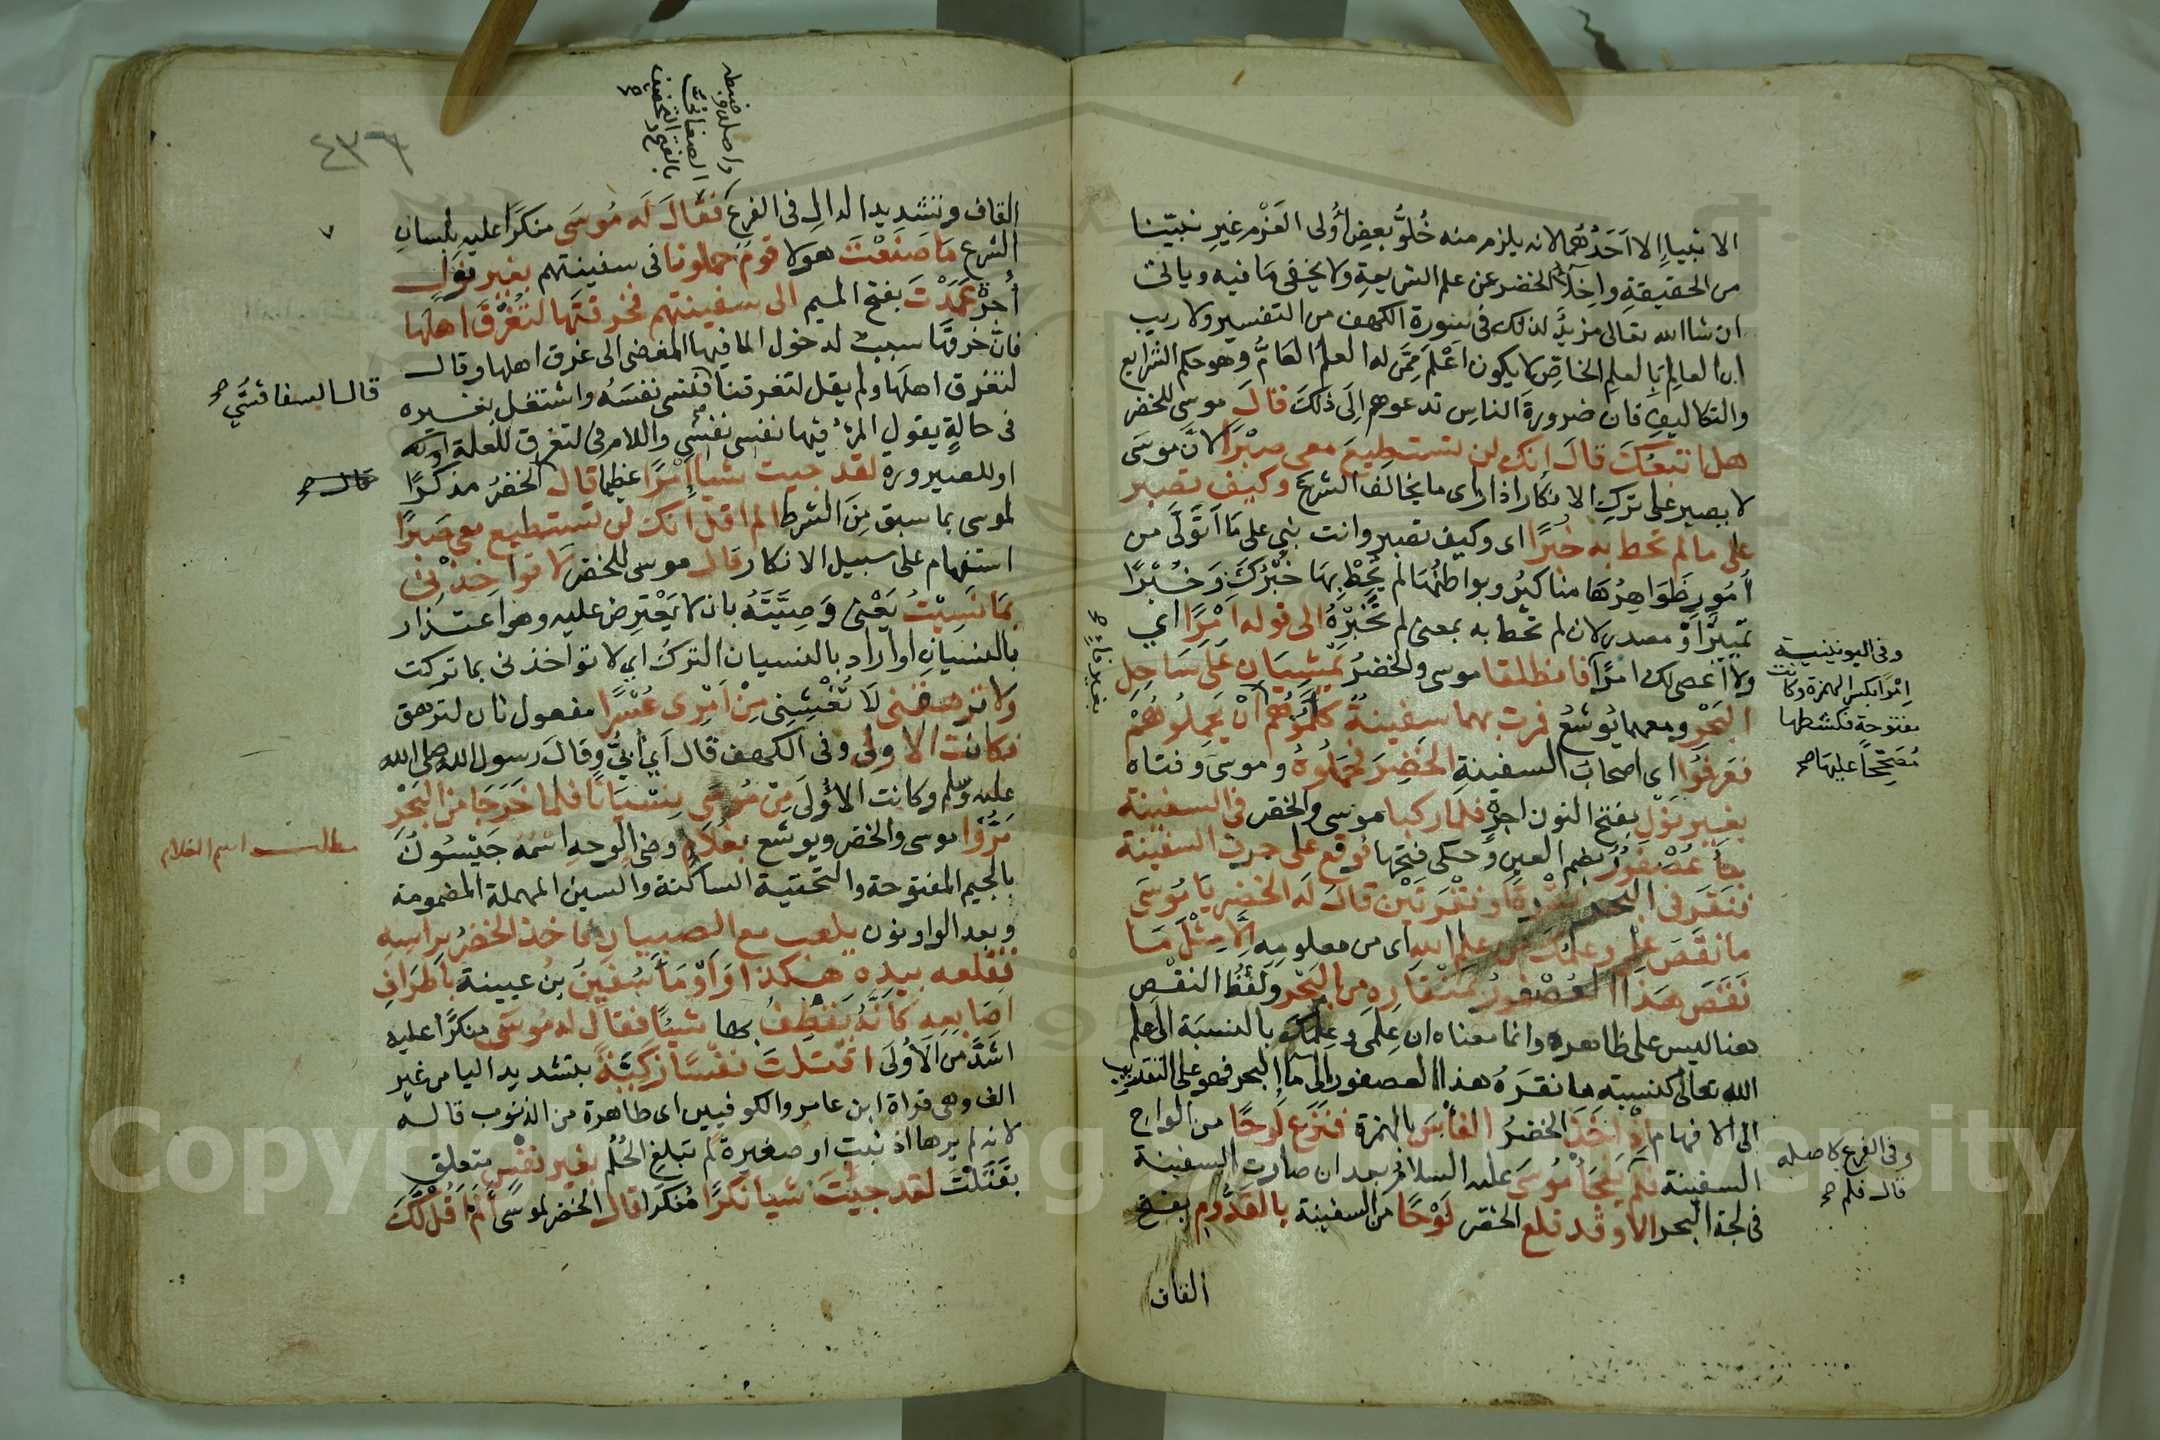 الانبياء الا احدهما لانه يلزم منه خُلوُّ بعضِ أُولى العَزْمِ غيرِ نبيّنا
من الحقيقةِ واخلاءُ الخضر عن علم الشريعةِ ولا يخفى مَا فيه وياتى
ان شا الله تعالى مزيدٌ لذلك فى سورة الكهف من التفسير ولا ريب
ان العالِمَ بالعلمِ الخاصِّ لا يكون اَعْلَم مِمَّن له العلمُ العَامُّ وهو حكم الشرايع
والتكاليف فان ضرورةَ الناسِ تدعوهم اِلَى ذلكَ قالَ موسى للخضر
هل اتبعُكَ قالَ إنك لن تستطيعَ معى صبْرًا لانَّ موسَى
لا يصبر على تركِ الانكار اذا راى ما يخالفُ الشرعَ وكيفَ تصبر
على ما لم تحط به خُبرًا اى وكيف تصبر وانت نبى على مَا اَتَوَلَّى من
اُمُورٍ ظَوَاهِرُهَا مناكيرُ وبواطنُهَا لم يُحِطْ بِهَا خُبْرُكَ وَخُبْرًا
تمييزٌ اوْ مصدرٌ لان لم تحط به بمعنى لم تَخْبُرْهُ الى قوله اِمْرًا اي
ولا اعصى لك امرًا فانطلقا موسى والخضرُ يَمْشِيَانِ عَلَى سَاحِلِ
البَحْر ومعهما يُوشعُ فمرت بهما سفينةٌ كلَّمُوهُم أنْ يَحمِلُوهُمْ
فعَرفُوا اى اصحابُ السفينةِ الخَضِرَ فحمَلُوهُ وموسَى وفتاه
بغيرِ نَوْلٍ بفتح النون اجرةٍ فلمَّا ركبا موسى والخضر فى السفينةِ
جَاءَ عُصْفُورٌ بضم العين وحكى فتحها فوقع على حرفِ السفينة
فنَقرَ فى البحر نقْرةً او نقْرَتَيْن قالَ له الخضر يَا مُوسَى
مانقَصَ عِلمى وعلمُكَ من علم اللهِ اى من معلومه اِلَّا مِثْلَ مَا
نَقَصَ هَذا العُصْفورُ بمنقارِه من البَحْر ولَفْظُ النقْصِ
هنا ليس على ظاهره وانما معناه ان عِلمَى وعِلمَك بالنسبَة الى علم
الله تعالى كنسبته ما نقرَهُ هذا العصفورُ اِلى ماءِ البحر فهو على التقريب
الى الافهام اِذْ اَخَذَ الخضرُ الفأسَ بالهمزة فنَزعَ لَوحًا من الواح
السفينة فلَم يفجأْ مُوسَى عليه السلام بعد ان صارت السفينة
فى لجة البحر الا وقد قلع الخضر لَوْحًا من السفينة بالقدُّومِ بفتح
القاف
وفى اليونينية
اِمْرًا بكسر الهمزة وكانت
مفتوحة فكشطها
مُصَحِّحًا عليها صح
بغير فاءٍ صح
وفى الفرع لاصله
قال فلم صح
٤٣٦
واصله وضبطه
الصغانى
بالفتح والتخفيف
صح
القاف وتشديد الدالِ فى الفرع فقالَ لَه مُوسَى منكرًا عليه بلسانِ
الشرع مَا صَنَعْتَ هولا قومٌ حملونا فى سفينتِهم بغير نولٍ
أُجرةٍ عَمَدْتَ بفتح الميم الى سفينتهم فخرقتَها لتُغْرِقَ اهلَها
فانَّ خرقَها سببٌ لدخول الما فيها المفضى الى غرق اهلها وقال
لتغرق اهلَها ولم يقل لتغرقنا فنسى نفسَهُ واشتغل بغيره
فى حالةٍ يقول المرْءُ فيها نفسى نفسى واللام فى لتغرق للعلة اوله
اوللصيرورة لقد جيت شيا اِمْرًا عظيما قال الخضرُ مذكرًا
لموسى بما سبق مِنَ الشرط الم اقل انك لن تستطيع معى صَبْرًا
استفهام على سبيل الانكار قال موسى للخضر لا تواخِذْنِى
بمَا نَسِيْتُ يَعْنى وَصِيَّتَهُ بان لا يَعْترِض عليه وهو اعتذار
بالنسيانِ او اراد بالنسيان التركَ اى لا تواخذنى بما تركت
ولا ترهقْنى لَا تُغْشِنِى مِنْ اَمْرِى عُسْرًا مفعول ثان لترهق
فكانت الاولى وفى الكهف قال أي أُبيٌّ وقَالَ رسول الله صلى الله
عليه وسَلم وكانت الاُوْلَى مِنْ مُوسَى نِسْيَانًا فلما خَرَجَا من البَحْر
مَرُّوْا موسى والخضر ويوشع بغُلامٍ وضئ الوجه اسْمُه جَيْسُونُ
بالجيم المفتوحة والتحتية الساكنة والسين المهملة المضمومة
وبعد الواو نون يلعب مع الصبيانِ فاخذ الخضرُ برَاسِه
فقلعه بيدِه هكذا وَاَوْمَأَ سُفينُ بن عيينة باطرَافِ
اصَابعِه كَانَّهُ يَقْطِفُ بها شيْئًا فقالَ له مُوسَى منكرًا عليه
اشدَّ من الاُوْلَى اقتلتَ نفسًا زكيّةً بتشديد اليا من غير
الف وهى قراة ابن عامر والكوفيين اى طاهرة من الذنوب قاله
لانه لم يرها اذنبت او صغيرة لم تبلغِ الحُلُم بغير نفْسٍ متعلق
بقَتَلْتَ لقد جِئْتَ شيا نكرًا مُنكرا قالَ الخضر لموسَى أَلمْ اَقُلْ لَكَ
قال السفاقسى صح
قال صح
مطلب اسم الغلام